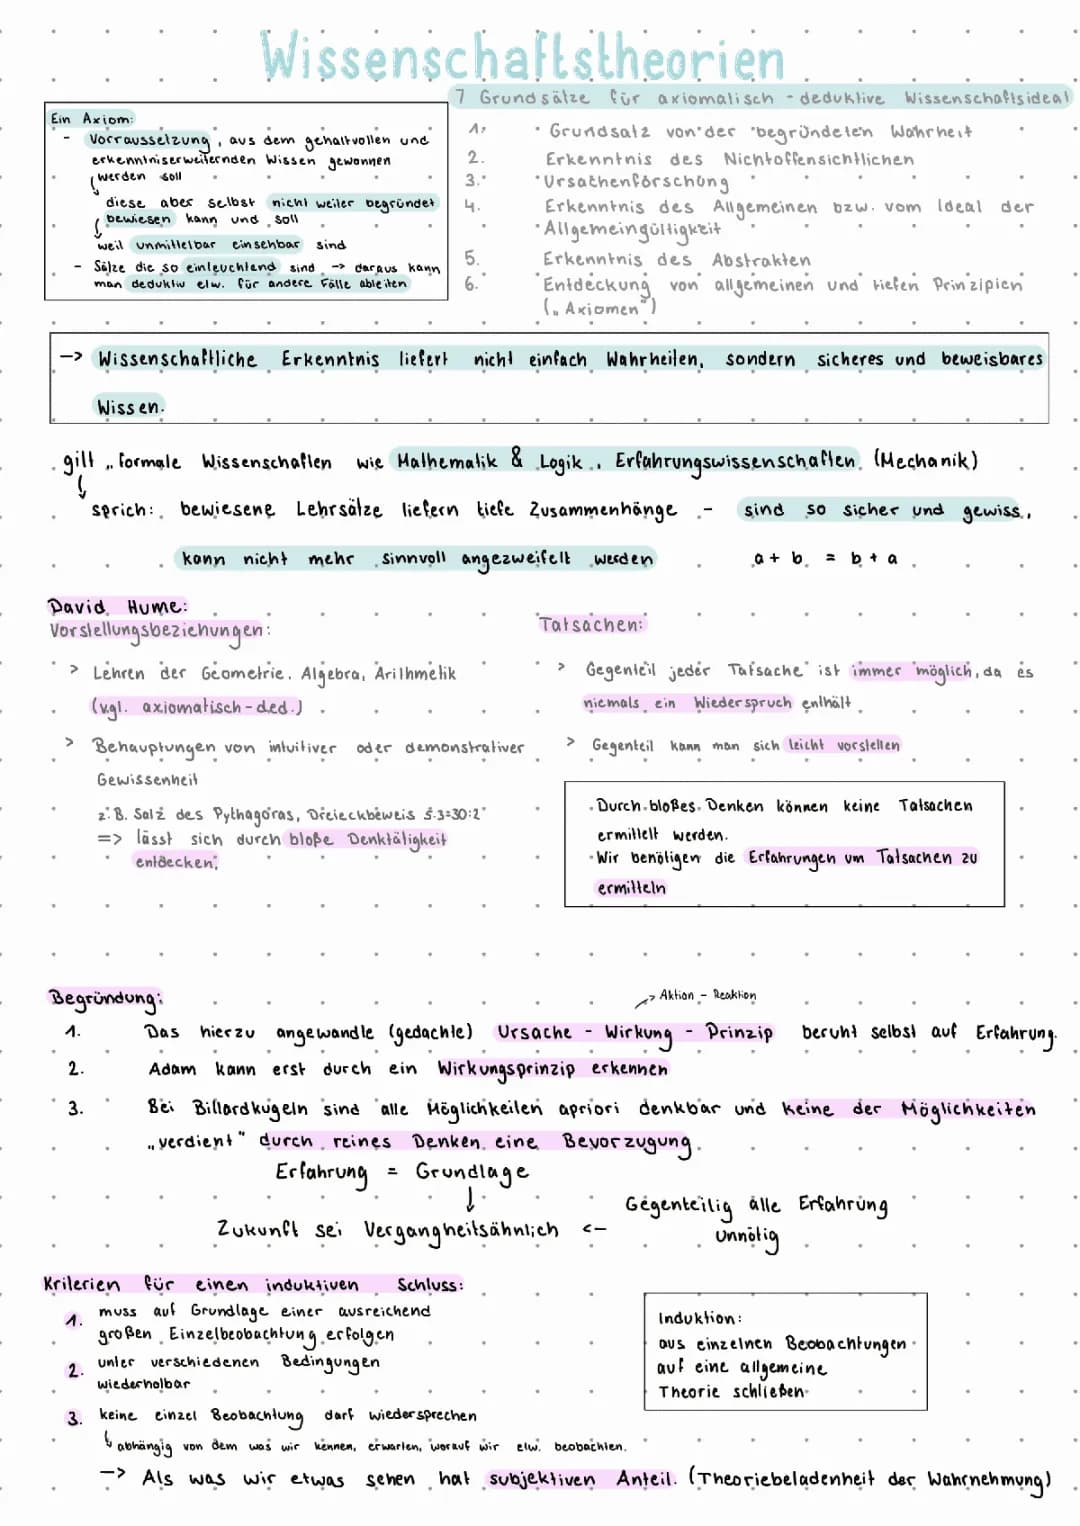 Wissenschaftstheorien
7 Grundsätze für axiomatisch - deduktive Wissenschaftsideal
Ein Axiom:
- Vorraussetzung, aus dem gehaltvollen und
erkenntniserweiternden Wissen gewonnen
werden soll
diese aber selbst nicht weiter begründet
bewiesen kann und soll
weil unmittelbar einsehbar sind
- Sätze die so einleuchtend sind -> daraus kann
man deduktiv etw. für andere Fälle ableiten
1. Grundsatz von der "begründeten Wahrheit
2. Erkenntnis des Nichtoffensichtlichen
3. Ursachenforschung
4. Erkenntnis des Allgemeinen bzw. vom Ideal der
Allgemeingültigkeit
5. Erkenntnis des Abstrakten
6. Entdeckung von allgemeinen und tiefen Prinzipien
(„Axiomen")
-> Wissenschaftliche Erkenntnis liefert nicht einfach Wahrheiten, sondern sicheres und beweisbares
Wissen.
gilt „ formale Wissenschaften wie Mathematik & Logik, Erfahrungswissenschaften. (Mechanik)
sprich: bewiesene Lehrsätze liefern tiefe Zusammenhänge - sind so sicher und gewiss,
kann nicht mehr sinnvoll angezweifelt werden a + b = b + a
David Hume:
Vorstellungsbeziehungen:
> Lehren der Geometrie, Algebra, Arithmetik
(vgl. axiomatisch-ded.)
> Behauptungen von intuitiver oder demonstrativer
Gewissenheit
z.B. Satz des Pythagoras, Dreieckbeweis 5·3=30:2
=> lässt sich durch bloße Denktätigkeit
entdecken;
Tatsachen:
> Gegenteil jeder Tatsache ist immer möglich, da es
niemals ein Wiederspruch enthält
> Gegenteil kann man sich leicht vorstellen
· Durch bloßes Denken können keine Tatsachen
ermittelt werden.
· Wir benötigen die Erfahrungen um Tatsachen zu
ermitteln
Begründung:
-> Aktion - Reaktion
1. Das hierzu angewandte (gedachte) Ursache - Wirkung - Prinzip beruht selbst auf Erfahrung.
2. Adam kann erst durch ein Wirkungsprinzip erkennen
3. Bei Billardkugeln sind alle Möglichkeiten apriori denkbar und keine der Möglichkeiten
„verdient" durch reines Denken eine Bevorzugung.
Erfahrung = Grundlage
Zukunft sei Vergangheitsähnlich <- Gegenteilig alle Erfahrung
Unnötig
Kriterien für einen induktiven Schluss:
1. muss auf Grundlage einer ausreichend
großen Einzelbeobachtung erfolgen
2. unter verschiedenen Bedingungen
wiederholbar
3. keine einzel Beobachtung darf wiedersprechen
abhängig von dem was wir kennen, erwarten, worauf wir etw. beobachten.
-> Als was wir etwas sehen hat subjektiven Anteil. (Theoriebeladenheit der Wahrnehmung)
Induktion:
aus einzelnen Beobachtungen
auf eine allgemeine
Theorie schließen